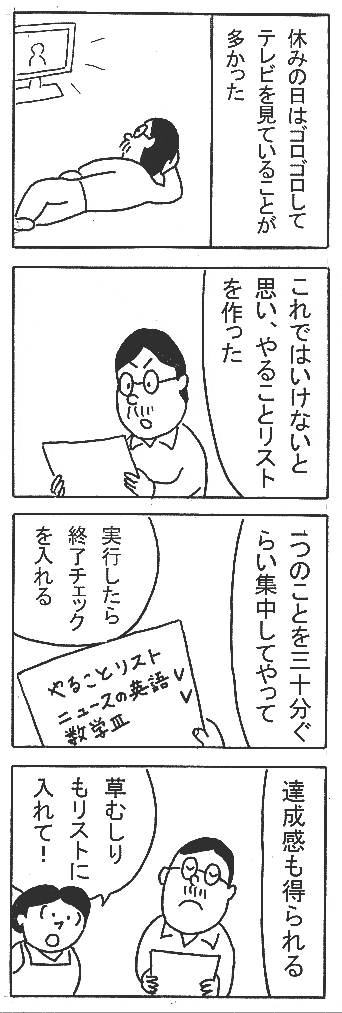 休みの日はゴロゴロして
テレビを見ていることが
多かった
これではいけないと
思い、やることリスト
を作った
一つのことを三十分ぐ
らい集中してやって
実行したら
終了チェック
を入れる
やることリスト
ニュースの英語✓
数学Ⅲ ✓
達成感も得られる
草むしり
もリストに
入れて!